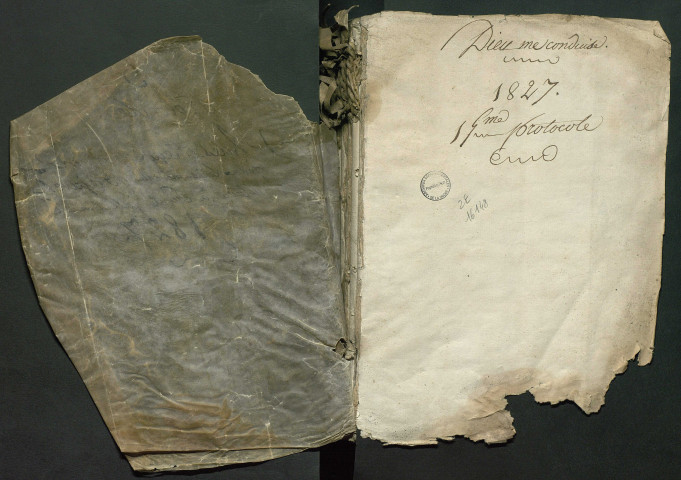 Dieu me conduise.
1827.
15me protocole
2E
16148